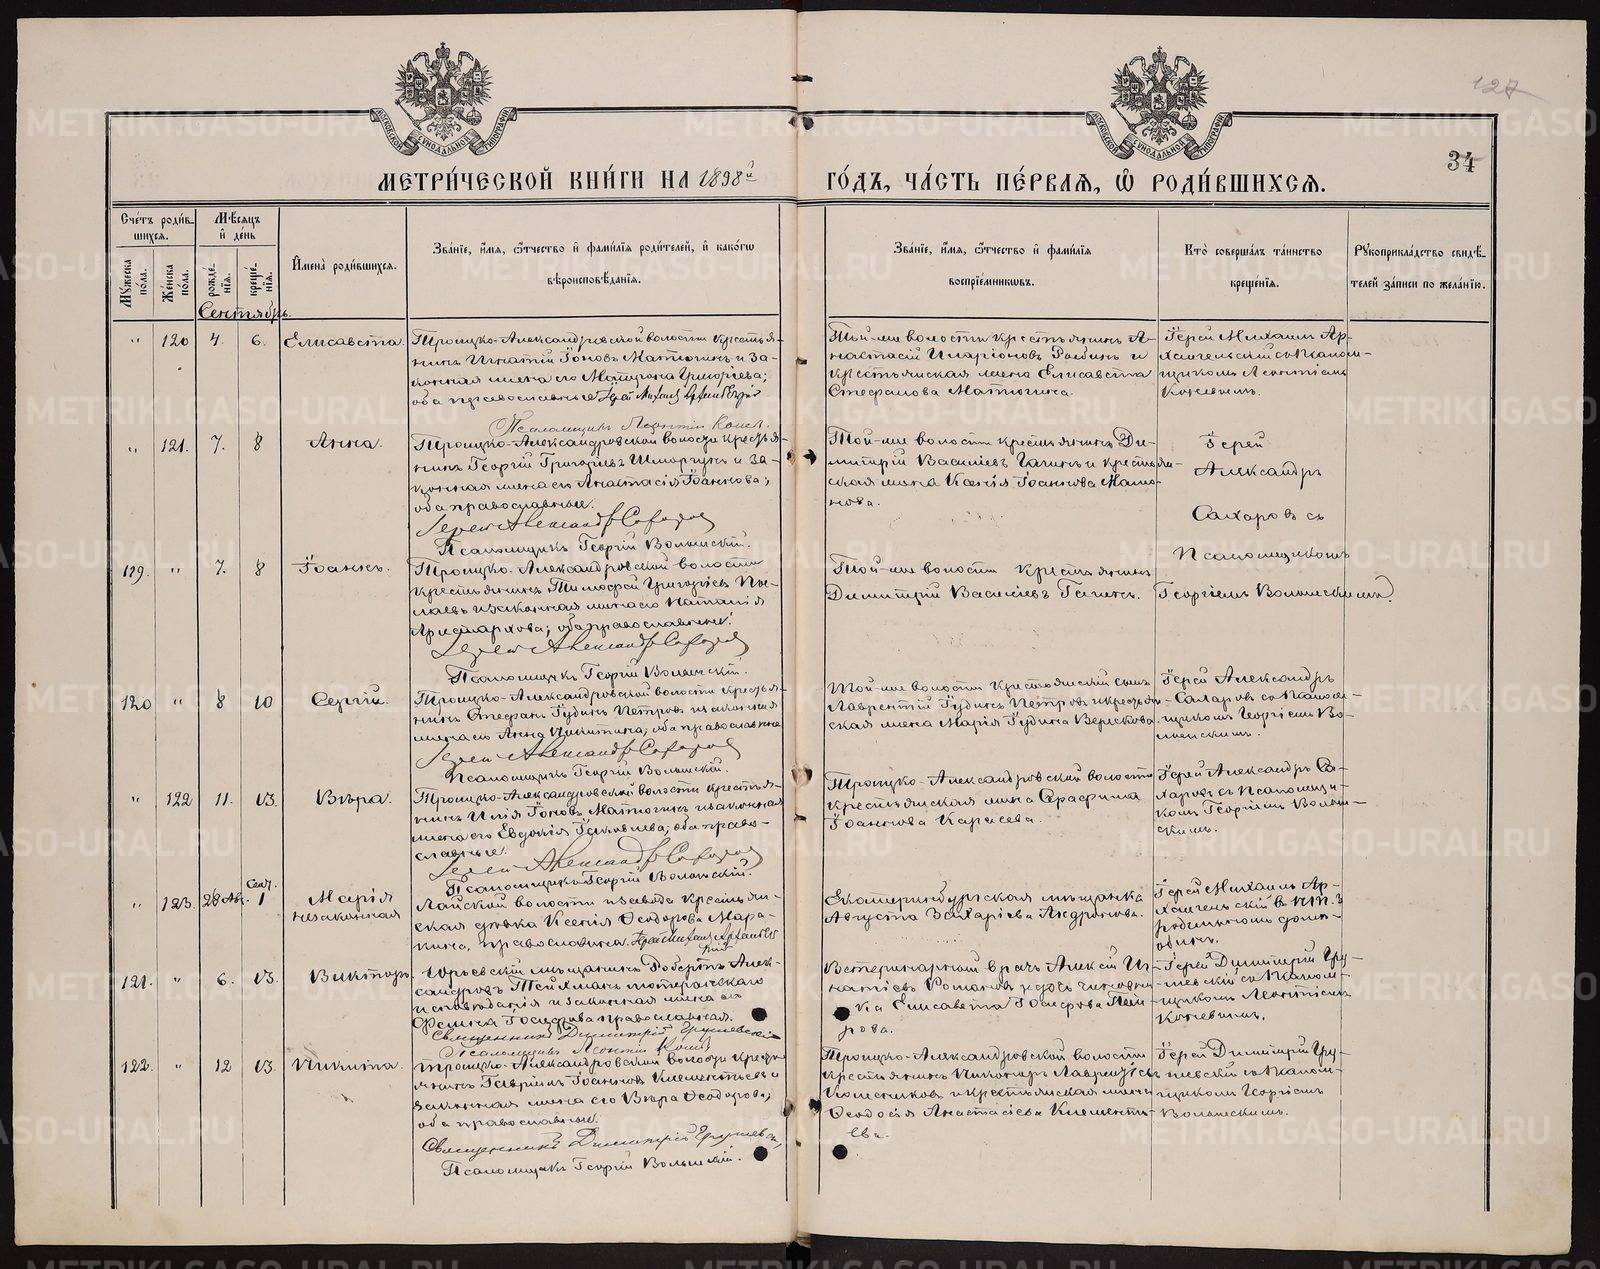 127
34
МЕТРИ́ЧЕСКОЙ КНИ́ГИ НА 1898й
ГО́ДЪ, ЧА́СТЬ ПЕ́РВАЯ, Ѡ҆ РОДИ́ВШИХСЯ.
Сче́тъ роди́в-
шихся.
Му́жеска
по́ла.
Же́нска
по́ла.
Мѣ́сяцъ
и҆ де́нь
рожде́-
нія.
креще́-
нія.
И҆мена̀ роди́вшихся.
Зва́нїе, и҆́мя, ѻ҆́тчество и҆ фами́лїя роди́телей, и҆ како́гѡ
вѣроисповѣ́данїя.
Зва́нїе, и҆́мя, ѻ҆́тчество и҆ фами́лїя
воспрїе́мникѡвъ.
Кто̀ соверша́лъ та́инство
креще́нїя.
Рꙋкоприкла́дство свидѣ́-
телей за́писи по жела́нїю.
Сентябрь.
" 120 4. 6. Елисавета.
Троицко-Александровской волости крестья-
нинъ Игнатій Іоновъ Матюгинъ и за-
конная жена его Матрона Григоріева;
оба православные. Іерей Михаилъ Архангельскій
Псаломщикъ Леонтій
Той-же волости крестьянинъ А-
настасій Иларіоновъ и
крестьянская жена Елисавета
Стефанова Матюгина.
Іерей Михаилъ Ар-
хангельскій съ псалом-
щикомъ Леонтіемъ
" 121. 7. 8 Анна.
Троицко-Александровской волости крестья-
нинъ Георгій Григоріевъ и за-
конная жена его Анастасія Іоаннова;
оба православные.
Іерей Александръ Сахаровъ
Псаломщикъ Георгій Волынскій.
Той-же волости крестьянинъ Ди-
митрій Василіевъ Гагинъ и крестьян-
ская жена Ксенія Іоаннова
Іерей
Александръ
Сахаровъ съ
псаломщикомъ
Георгіемъ Волынскимъ.
119. " 7. 8 Іоаннъ.
Троицко-Александровской волости
крестьянинъ Тимофей Григоріевъ
и законная жена его Наталія
Аристархова; оба православные.
Іерей Александръ Сахаровъ
Псаломщикъ Георгій Волынскій.
Той-же волости крестьянинъ
Димитрій Василіевъ Гагинъ.
120 " 8 10 Сергій.
Троицко-Александровской волости крестья-
нинъ Стефанъ Іудинъ Петровъ и законная
жена его Анна Никитина; оба православные
Іерей Александръ Сахаровъ
Псаломщикъ Георгій Волынскій.
Той-же волости крестьянскій сынъ
Лаврентій Іудинъ Петровъ и крестьян-
ская жена Марія Іудина
Іерей Александръ
Сахаровъ съ псалом-
щикомъ Георгіемъ Во-
лынскимъ.
" 122 11. 13. Вѣра.
Троицко-Александровской волости крестья-
нинъ Илія Іоновъ Матюгинъ и законная
жена его Евдокія Іаковлева; оба право-
славные.
Іерей Александръ Сахаровъ
Псаломщикъ Георгій Волынскій.
Троицко-Александровской волости
крестьянская жена Серафима
Іоаннова Карасева.
Іерей Александръ Са-
харовъ съ псаломщи-
комъ Георгіемъ Волын-
скимъ.
" 123. 28 Авг. Сент. 1 Марія
незаконная
Лайской волости и завода крестьян-
ская дѣвка Ксенія Ѳеодорова
православная. Іерей Михаилъ Архангель-
скій
Екатеринбургская мѣщанка
Августа Захаріева Андріянова.
Іерей Михаилъ Ар-
хангельскій
родильномъ домѣ
одинъ.
121. " 6. 13. Викторъ.
Юрьевскій мѣщанинъ Робертъ Алек-
сандровъ Тейхманъ лютеранскаго
исповѣданія и законная жена его
Іосифова православная.
Священникъ Димитрій
Псаломщикъ Леонтій
Ветеринарный врачъ Алексій Иг-
натіевъ Романовъ и дочь чиновни-
ка Елисавета Іосифова
рова.
Іерей Димитрій
съ псалом-
щикомъ Леонтіемъ
122. " 12 13. Никита.
Троицко-Александровской волости кресть-
янинъ Гавріилъ Іоанновъ Клементьевъ и
законная жена его Вѣра Ѳеодорова;
оба православные.
Священникъ Димитрій
Псаломщикъ Георгій Волынскій.
Троицко-Александровской волости
крестьянинъ Никаноръ Лаврентіевъ
Колесниковъ и крестьянская жена
Ѳеодосія Анастасіева Клементь-
ева.
Іерей Димитрій
съ псалом-
щикомъ Георгіемъ
Волынскимъ.
METRIKI.GASO-URAL.RU